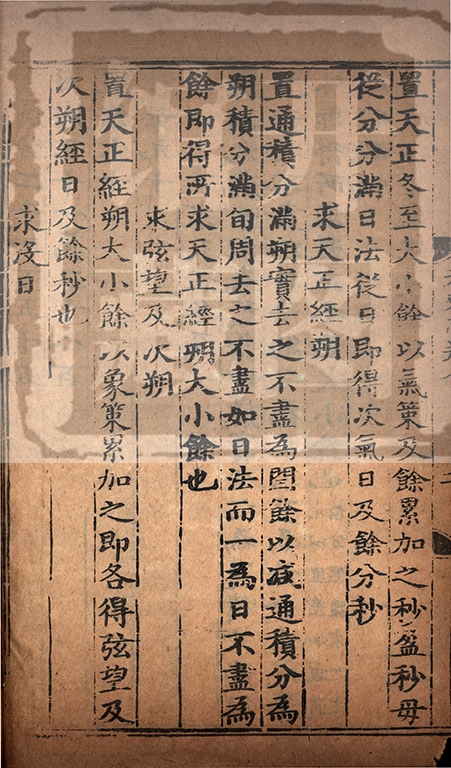 置天正冬至大小餘以氣策及餘累加之秒盈秒母
從分分滿日法從日即得次氣日及餘分秒
求天正經朔
置通積分滿朔實去之不盡為閏餘以减通積分為
朔積分滿旬周去之不盡如日法而一為日不盡為
餘即得所求天正經朔大小餘也
求弦望及次朔
置天正經朔大小餘以象策累加之即各得弦望及
次朔經日及餘秒也
求沒日